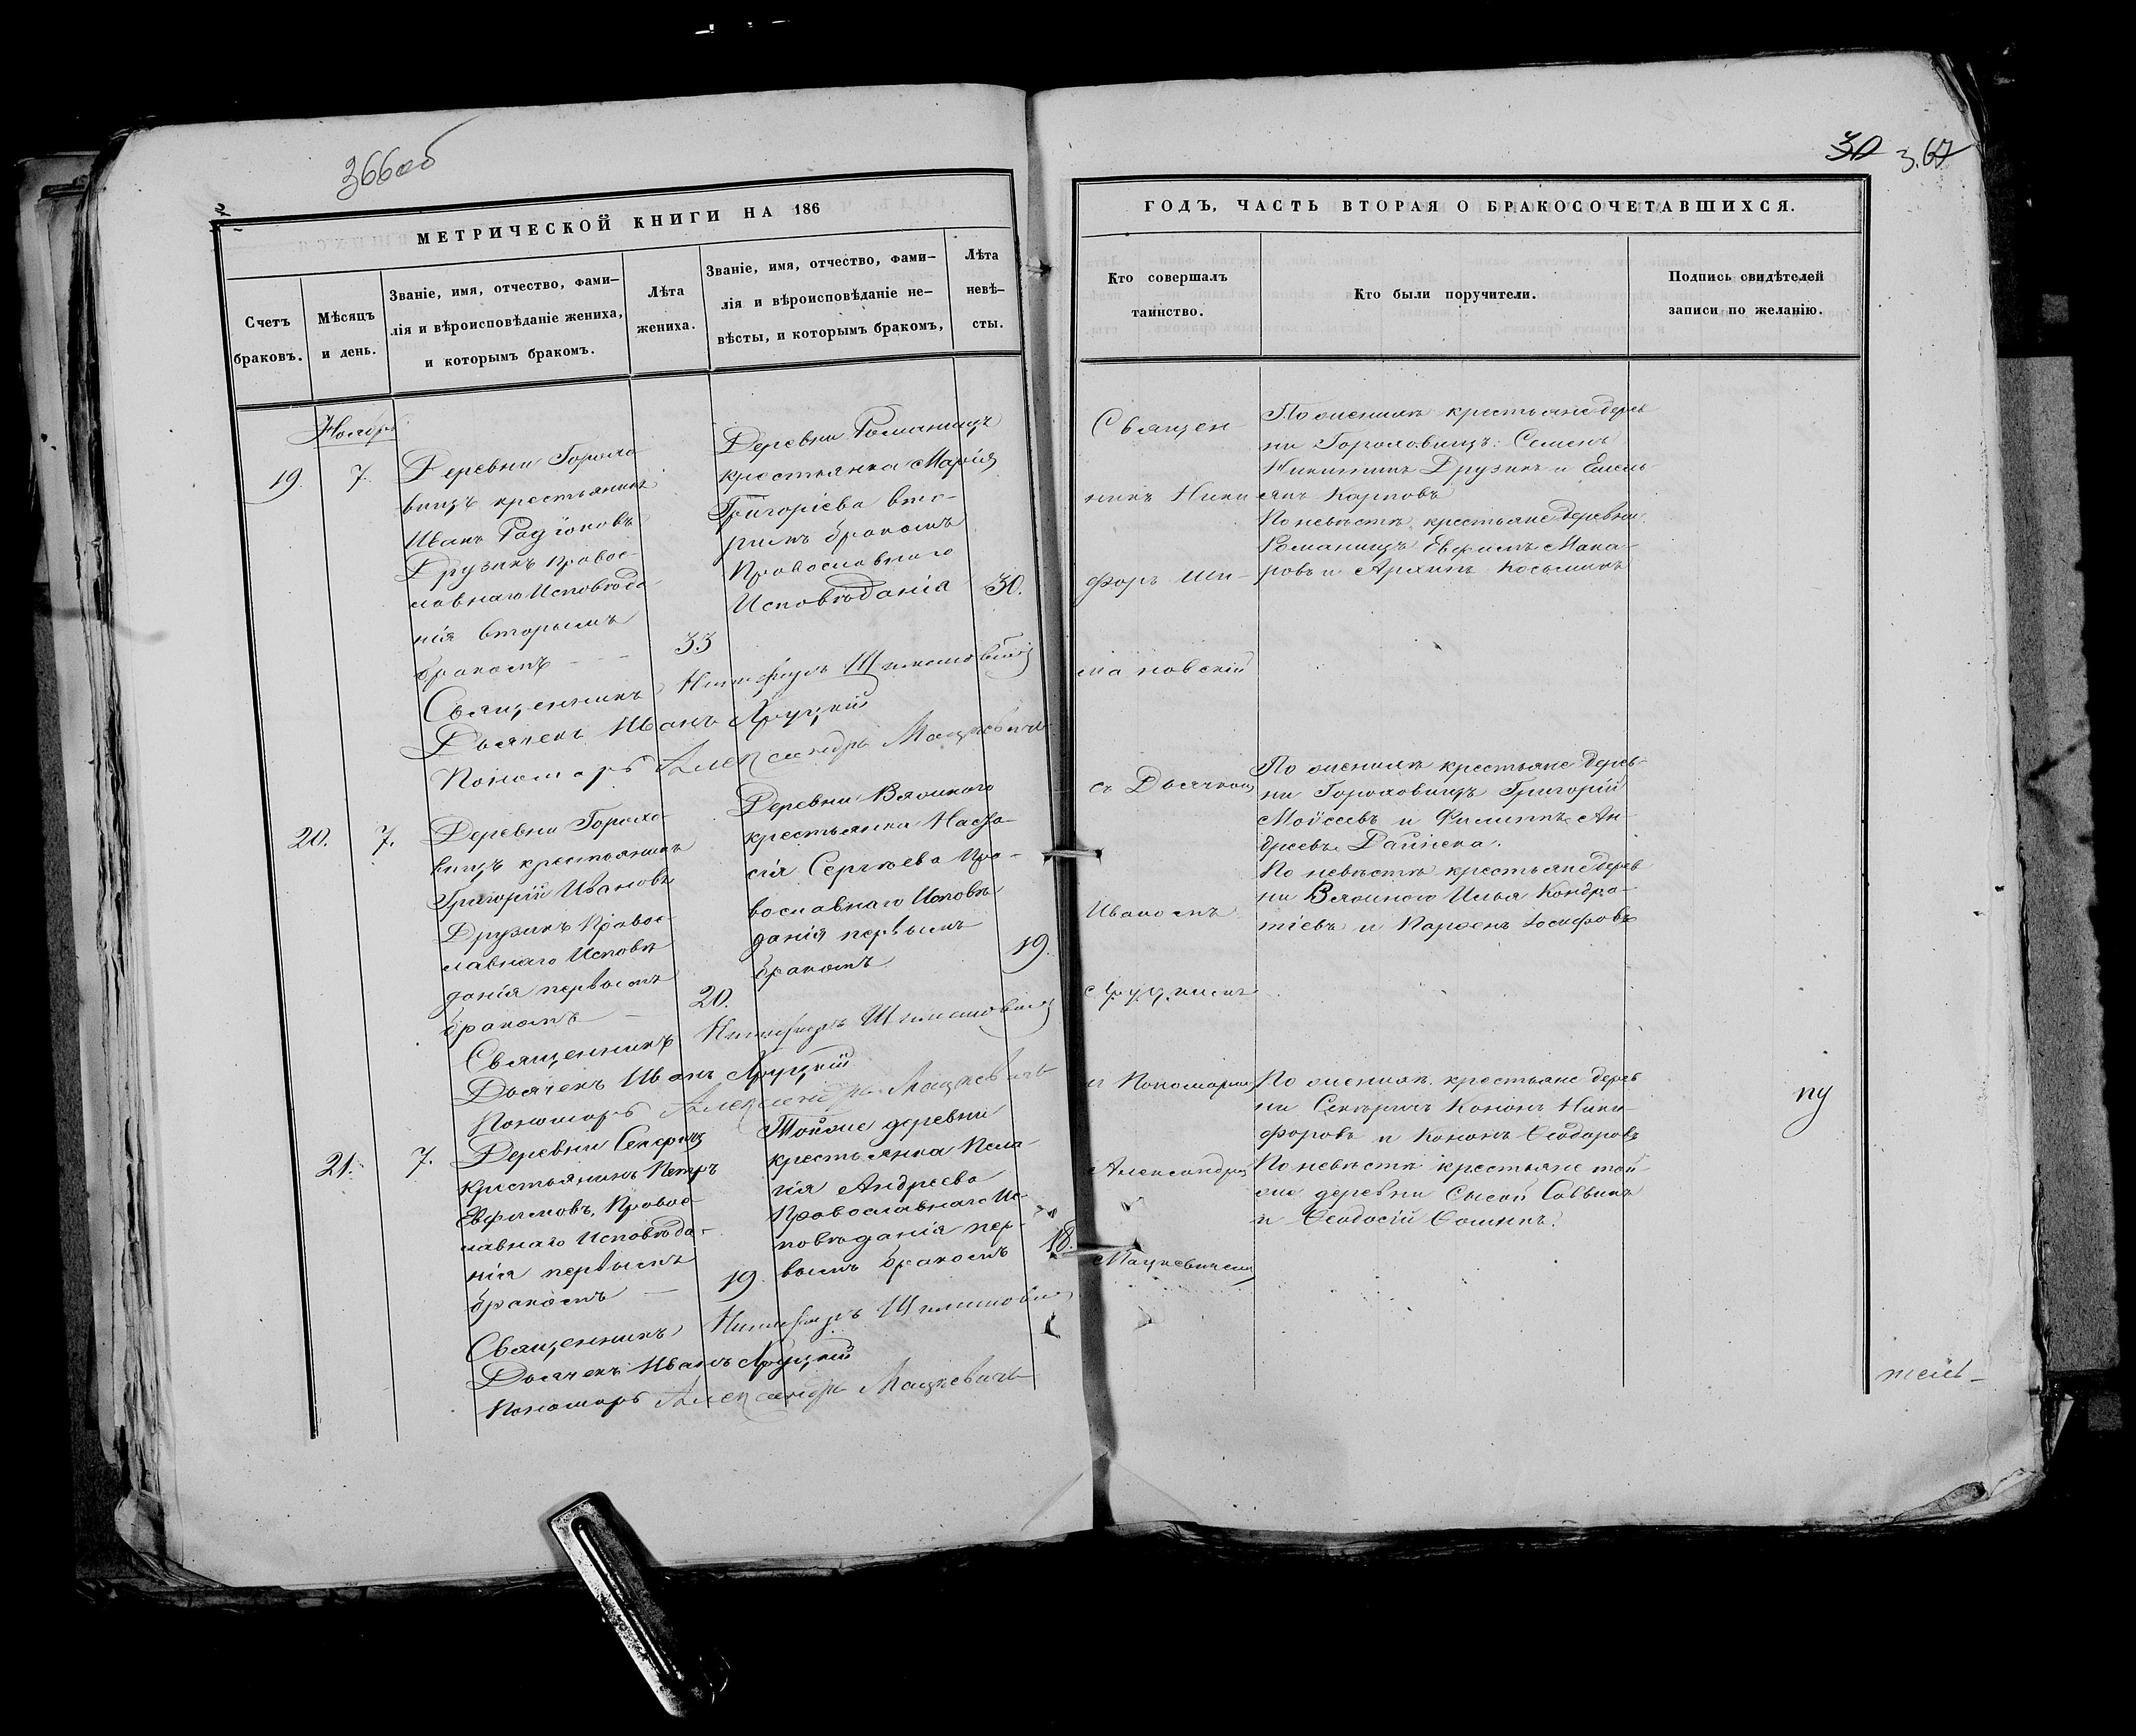 366об
МЕТРИЧЕСКОЙ КНИГИ НА 186
Счетъ
браковъ.
Мѣсяцъ
и день.
Званіе, имя, отчество, фами-
лія и вѣроисповѣданіе жениха,
и которымъ бракомъ.
Лѣта
жениха.
Званіе, имя, отчество, фами-
лія и вѣроисповѣданіе не-
вѣсты, и которымъ бракомъ,
Лѣта
невѣ-
сты.
Ноябрь
19.
7.
Деревни Горохо
вищъ крестьянинъ
Иванъ Радіоновъ
Друзикъ Правос-
лавнаго Исповѣда
нія вторымъ
бракомъ
33
Деревни Романищъ
крестьянка Марія
Григоріева вто-
рымъ бракомъ
Православнаго
Исповѣданія
30.
Священникъ Никифоръ Шимановскій
Дьячекъ Иванъ Хруцкій
Пономарь Александръ Мацкевичъ
20.
7.
Деревни Горохо
вищъ крестьянинъ
Григорій Ивановъ
Друзикъ Правос-
лавнаго Исповѣ
данія первымъ
бракомъ
20.
Деревни Вязкаго
крестьянка Наста-
сія Сергѣева Пра-
вославнаго Исповѣ
данія первымъ
бракомъ
19.
Священникъ Никифоръ Шимановскій
Дьячекъ Иванъ Хруцкій
Пономарь Александръ Мацкевичъ
21.
7.
Деревни Секеричъ
крестьянинъ Петръ
Евфимовъ, Правос-
лавнаго Исповѣда-
нія первымъ
бракомъ
19.
Тойже деревни
крестьянка Пела-
гія Андреева
Православнаго Ис-
повѣданія пер-
вымъ бракомъ
18.
Священникъ Никифоръ Шимановскій
Дьячекъ Иванъ Хруцкій
Пономарь Александръ Мацкевичъ
30 367
ГОДЪ, ЧАСТЬ ВТОРАЯ О БРАКОСОЧЕТАВШИХСЯ.
Кто совершалъ
таинство.
Кто были поручители.
Подпись свидѣтелей
записи по желанію.
Священ
никъ Ники
форъ Ши-
мановскій
съ Дьячком
Иваномъ
Хруцкимъ
и Пономарем
Александром
Мацкевичем
По женихѣ крестьяне дерев
ни Гороховищъ: Семенъ
Никитинъ Друзикъ и Емель-
янъ Карповъ
По невѣстѣ крестьяне деревни
Романищъ Евфимъ Мака-
ровъ и Архипъ Косьминъ
По женихѣ крестьяне дерев-
ни Гороховищъ Григорій
Моѵсеевъ и Филиппъ Ан-
дреевъ
По невѣстѣ крестьяне дерев
ни Вязкаго Илья Кондра-
тіевъ и Парфенъ Іосифовъ
По женихѣ крестьяне дерев
ни Секеричъ Кононъ Ники-
форовъ и Кононъ Ѳеодоровъ
По невѣстѣ крестьяне той-
же деревни Сысой Саввинъ
и Ѳеодосій Ѳоминъ.